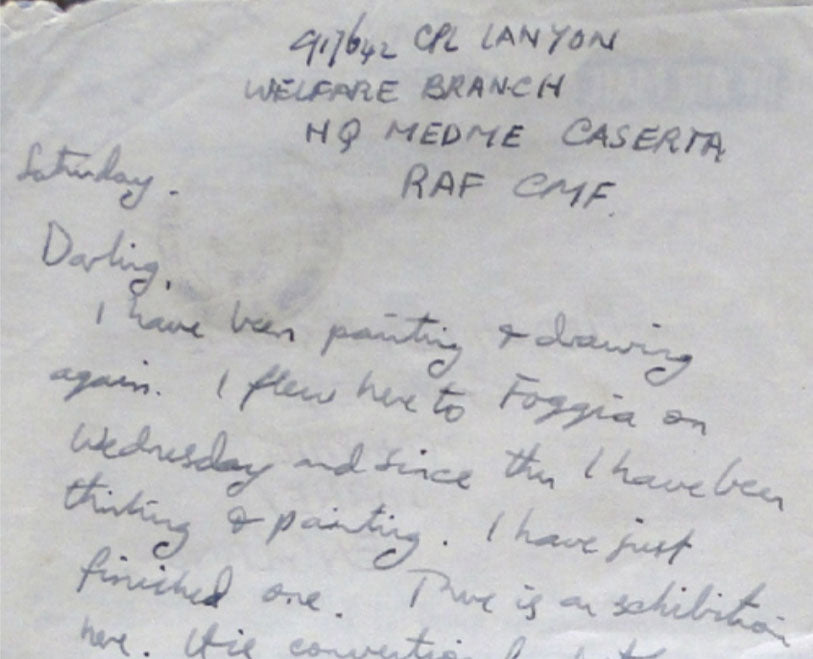 917642 CPL LANYON
WELFARE BRANCH
HQ MEDME CASERTA
RAF CMF.
Saturday.
Darling,
I have been painting & drawing
again. I flew here to Foggia on
Wednesday and since then I have been
thinking & painting. I have just
finished one. There is an exhibition
here. It is